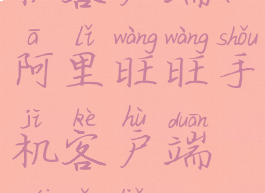 ā lǐ wàng wàng shǒu
阿里旺旺手
jī kè hù duān
机客户端